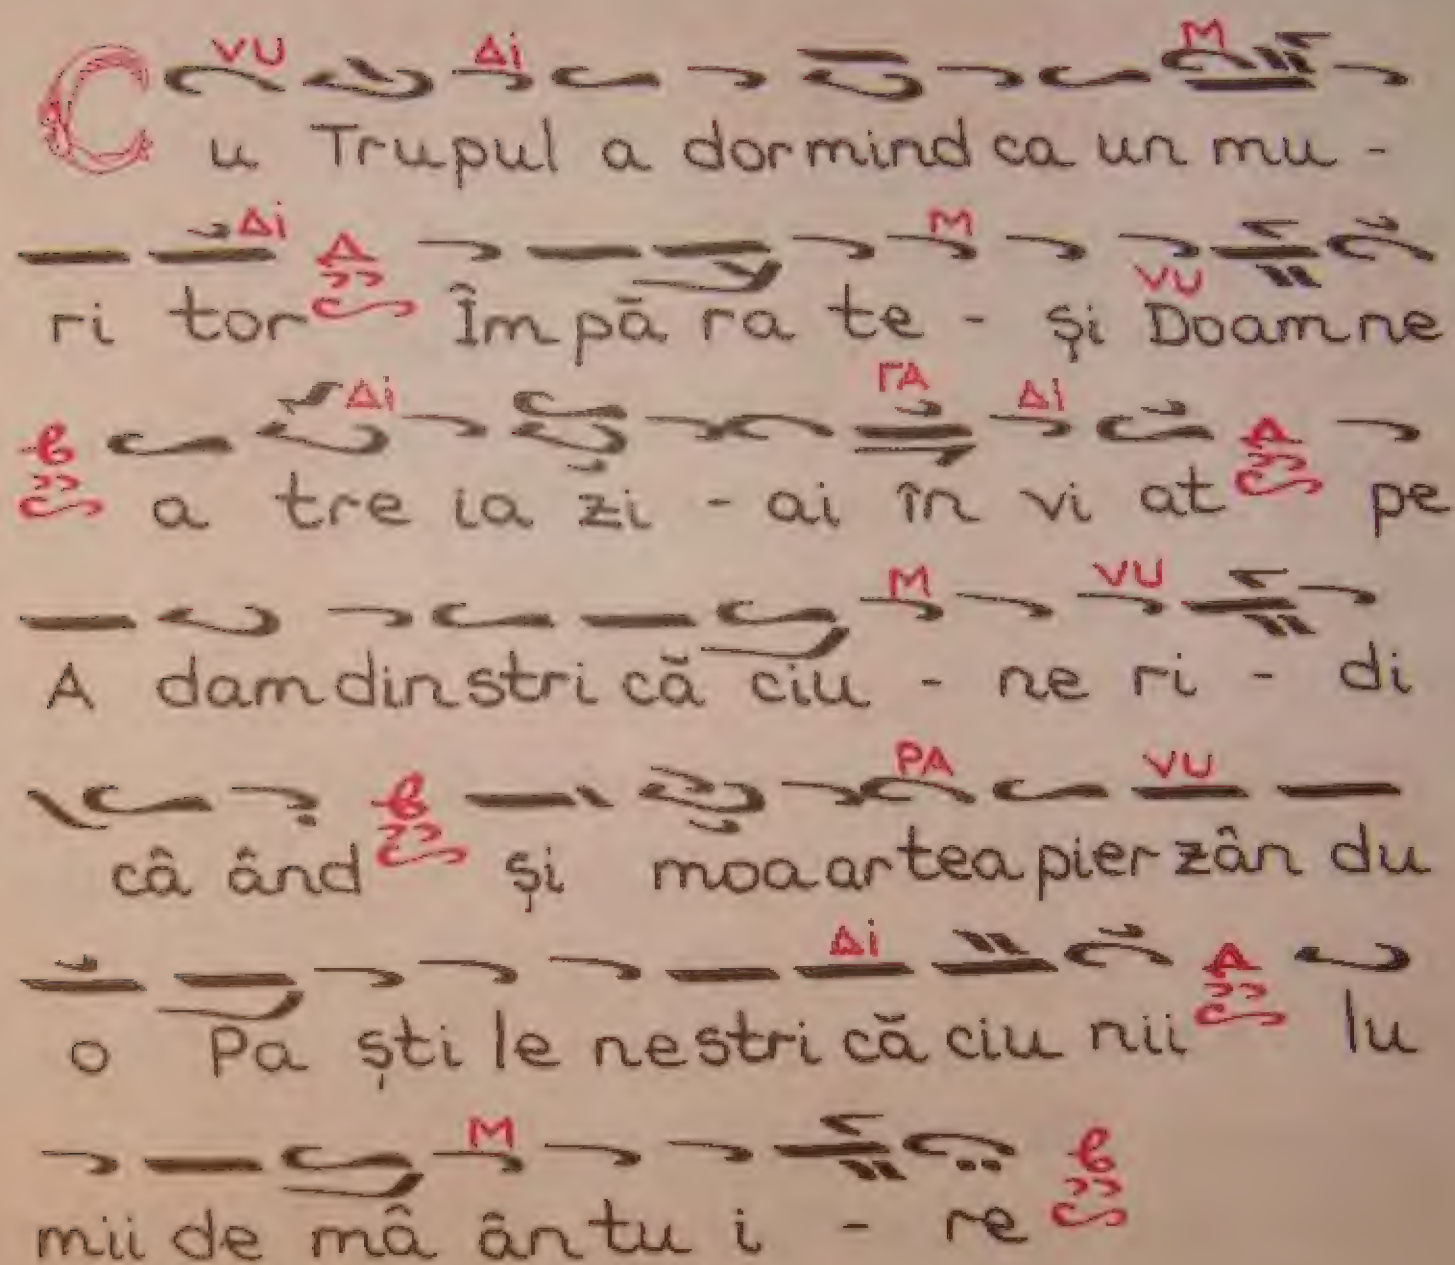 VU Δi M
Cu Trupul a dormind ca un mu -
Δi M
ri tor Δ Împă ra te - și VU Doamne
Δi ΓΑ Δi
a tre ia zi - ai în vi at Δ pe
M VU
A dam din stri că ciu - ne ri - di
PA VU
câ ând și moa ar tea pier zân du
Δi
o Pa ști le ne stri că ciu nii Δ lu
M
mii de mâ ân tu i - re